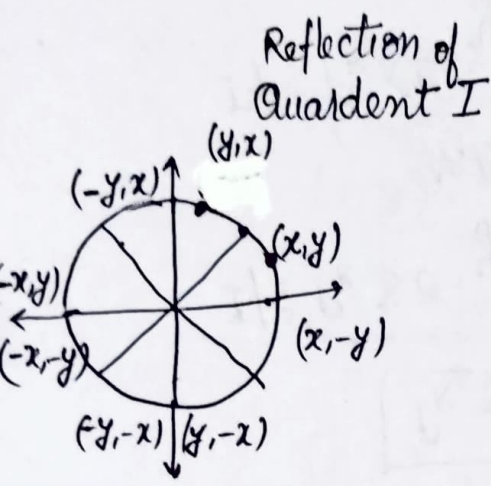 Reflection of
Quardent I
(y,x)
(-y,x)
(x,y)
-x,y)
(x,-y)
(-x,-y)
(-y,-x) (y,-x)